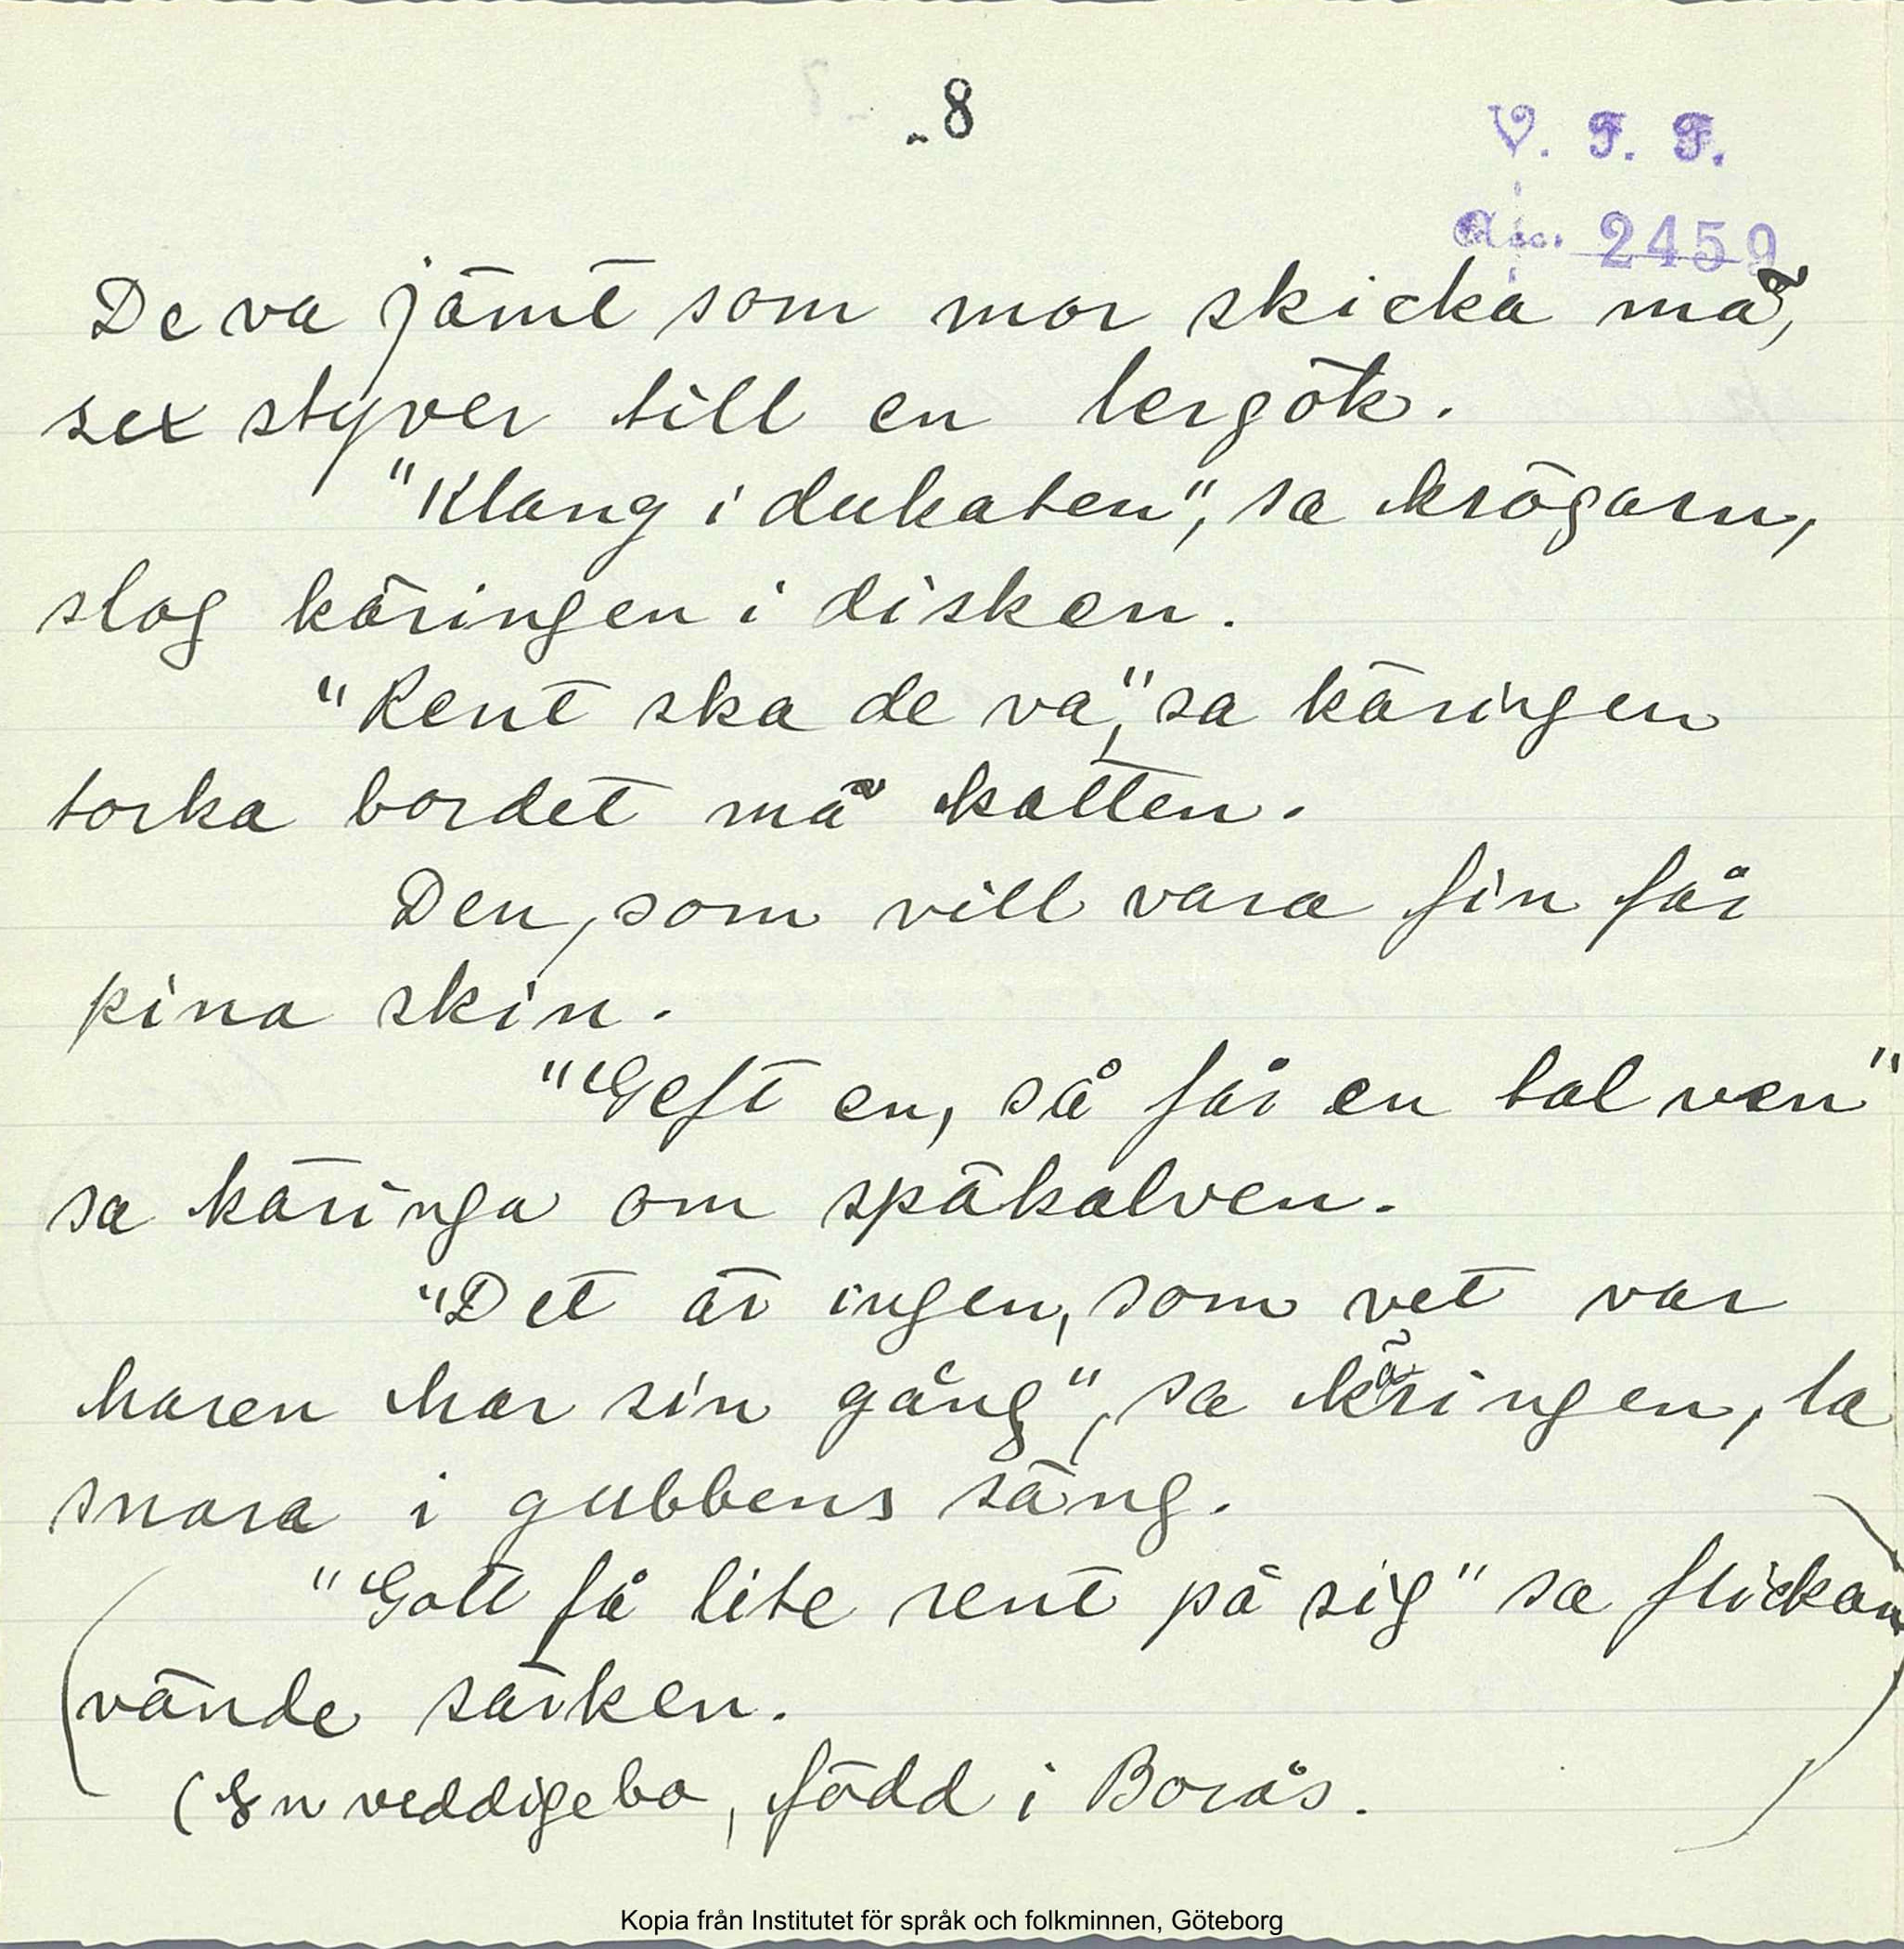 - 8
V. F. F.
Acc. 2459
De va jämt som mor skicka mä,
sex styver till en lergök.
"Klang i dukaten", sa krögarn,
slog käringen i disken.
"Rent ska de va," sa käringen
torka bordet mä katten.
Den, som vill vara fin får
pina skin.
"Geft en, så får en tal ven"
sa käringa om späkalven.
"Det är ingen, som vet var
haren har sin gång", sa käringen, la
snara i gubbens säng.
"Gott få lite rent på sig" sa flickan
vände särken.
(En veddigebo, född i Borås.)
Kopia från Institutet för språk och folkminnen, Göteborg